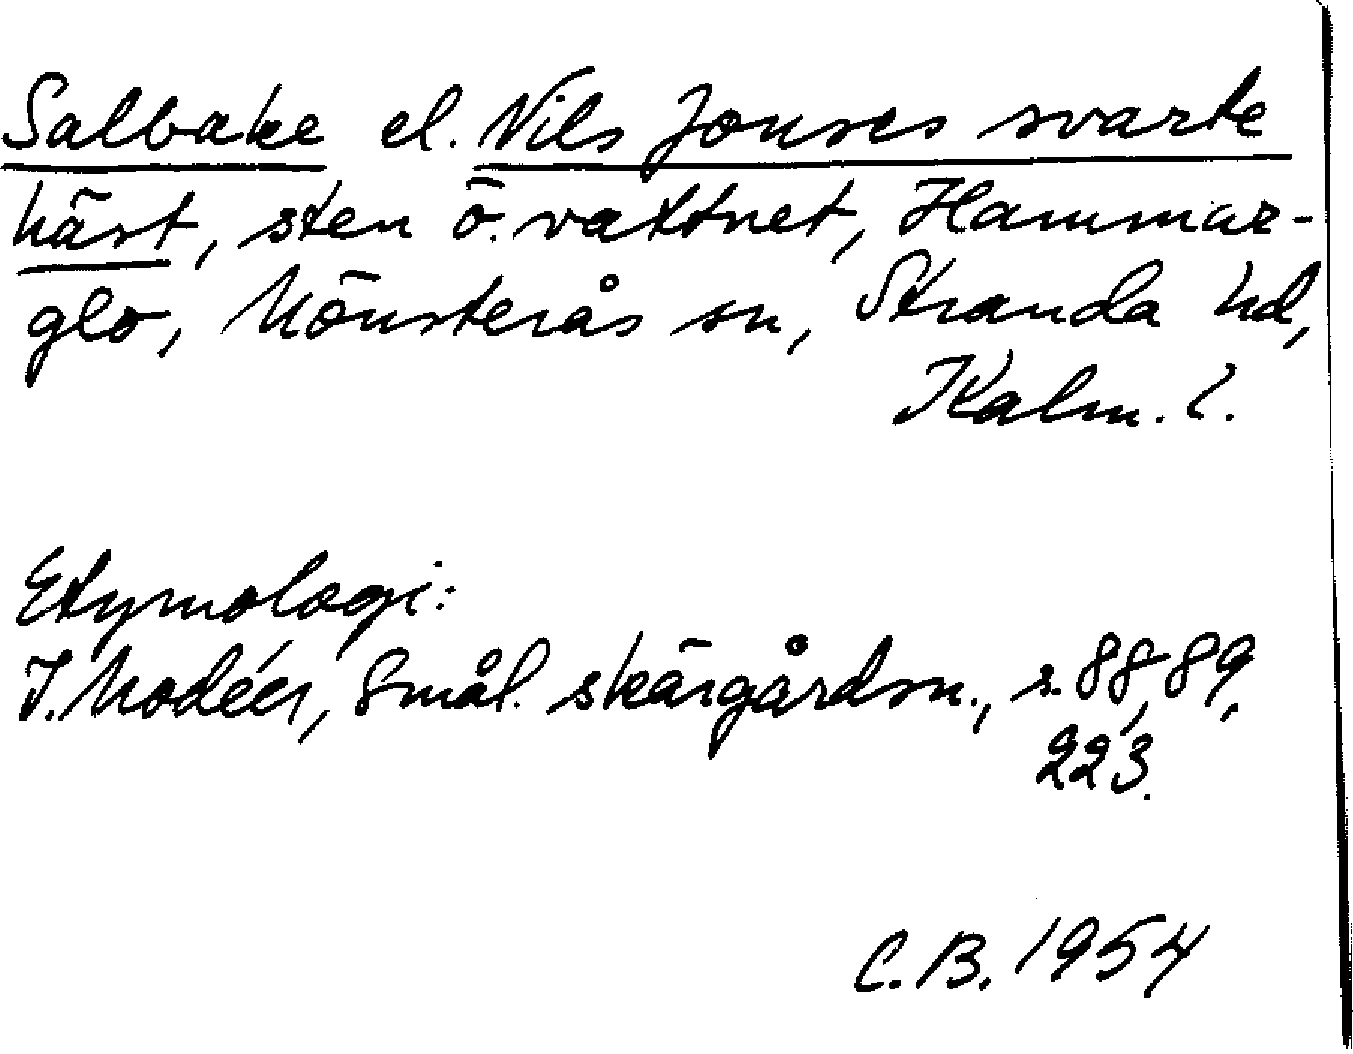 Salbake el. Nils Jonses svarte
häst, sten ö. vattnet, Hammar-
glo, Mönsterås sn, Stranda hd,
Kalm. l.
Etymologi:
I. Modéer, Smål. skärgårdsn., s. 88, 89,
223.
C.B. 1954